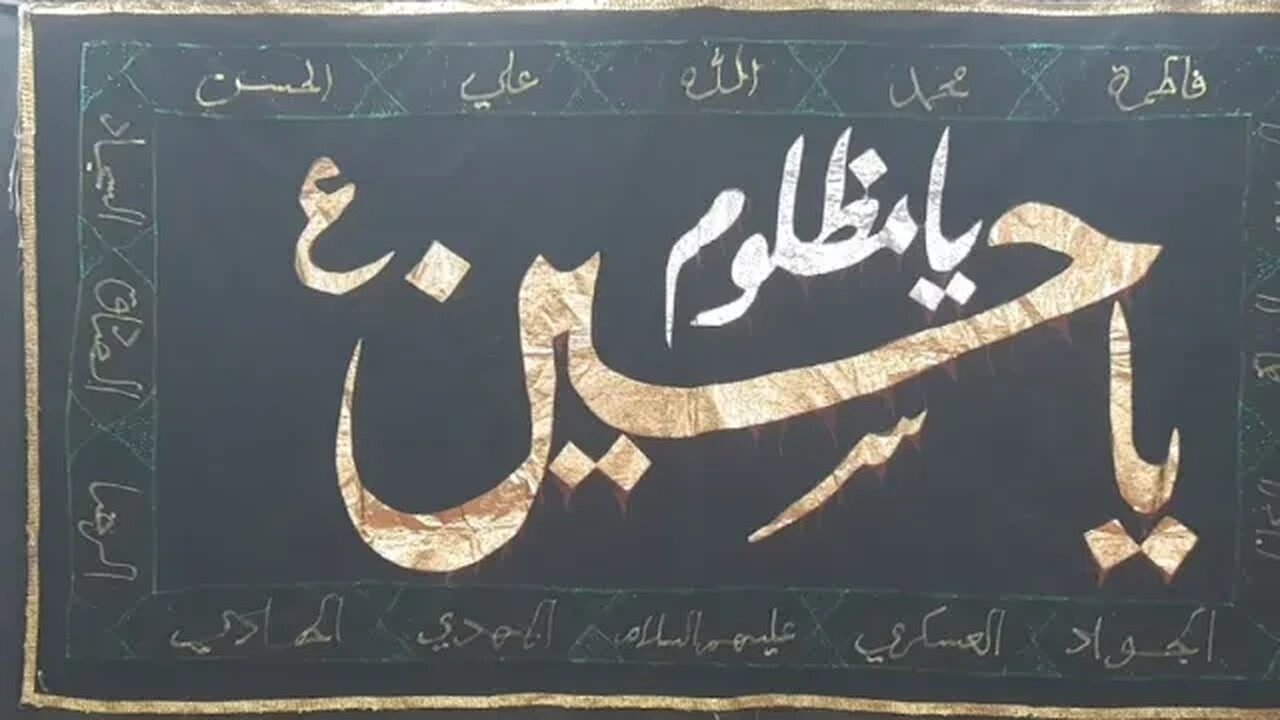 فاطمة محمد الله علي الحسن
يا مظلوم
يا حسين ع
السجاد الصادق الرضا
الجواد العسكري عليهم السلام المهدي الهادي